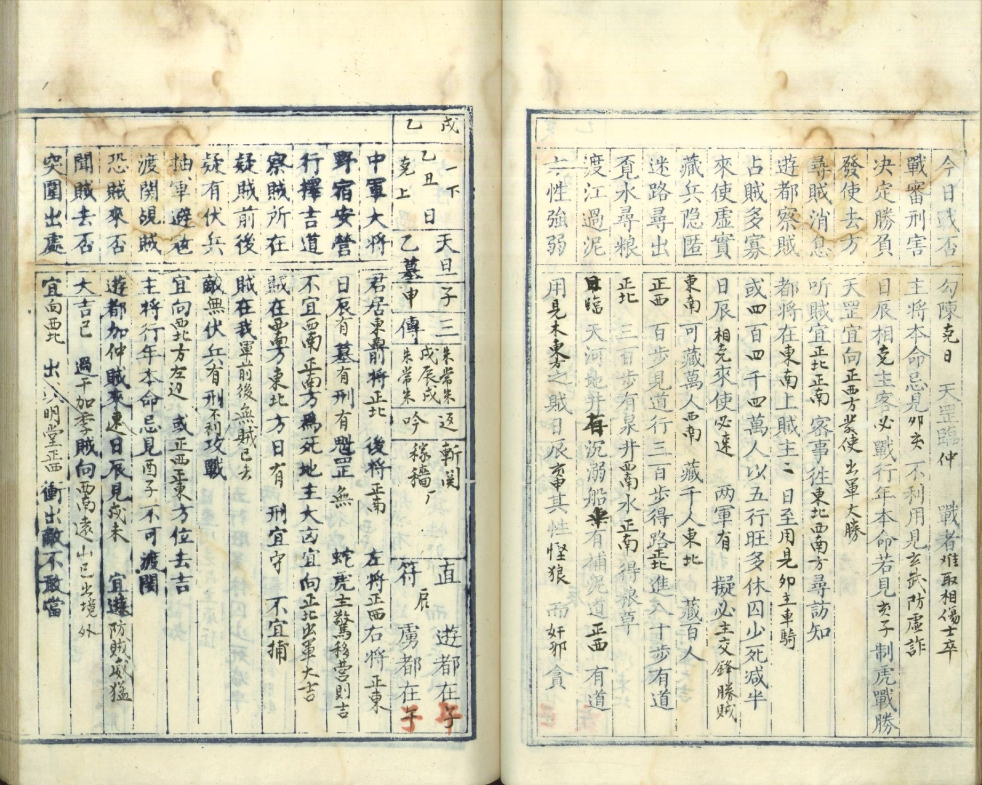 今日戰否 勾陳克日 天罡臨仲 戰者堆取相傷士卒
戰審刑害 主將本命忌見卯亥 不利用見玄武防虛詐
決定勝負 日辰相克主客必戰行年本命若見亥子 制虎戰勝
發使去方 天罡宜向正西方發使出軍大勝
尋賊消息 听賊宜正北正南 密事徃東北西南方尋訪知
遊都察賊 都將在東南上賊主 日至用見卯主車騎
占賊多寡 或四百四千四萬人以五行旺多休囚少死减半
來使虛實 日辰相克來使必速 两軍有 擬必主交鋒勝賊
藏兵隐匿 東南可藏萬人西南 藏千人東北 藏百人
迷路尋出 正西 百步見道行三百步得路正北進入十步有道
覔水尋粮 正北 三百步有泉井西南水正南得粮草
渡江過泥 日臨天河 井有沉溺船 有捕 道正西有道
性強弱 用見木東方之賊日辰 其性慳狼 而奸邪 貪
戌一下 乙丑日 天旦子三 朱常朱 返 斬関 直 遊都在子
乙 克上 乙墓申傳 戌辰戌 朱常朱 吟 稼穡 符 辰 虜都在午
中軍大將 君居東南前將正北 後將正南 左將正西右將正東
野宿安營 日辰有 墓有刑有魁罡無 蛇虎主驚移营則吉
行擇吉道 不宜西南正南方爲死地主大凶宜向正北出軍大吉
察賊所在 賊在西南方東北方日有 刑宜守 不宜捕
疑賊前後 賊在我軍前後無賊已去
疑有伏兵 敵無伏兵有刑不利攻戰
抽軍避 宜向西北方左边 或正西正東方位去吉
渡関 賊 主將行年本命忌見酉子 不可渡関
恐賊來否 遊都加仲賊來速日辰見戌未 宜速防賊威猛
聞賊去否 大吉已 過于加季賊向西南遠山已出境外
突圍出處 宜向西北 出 明堂正西 衝出敵不敢當